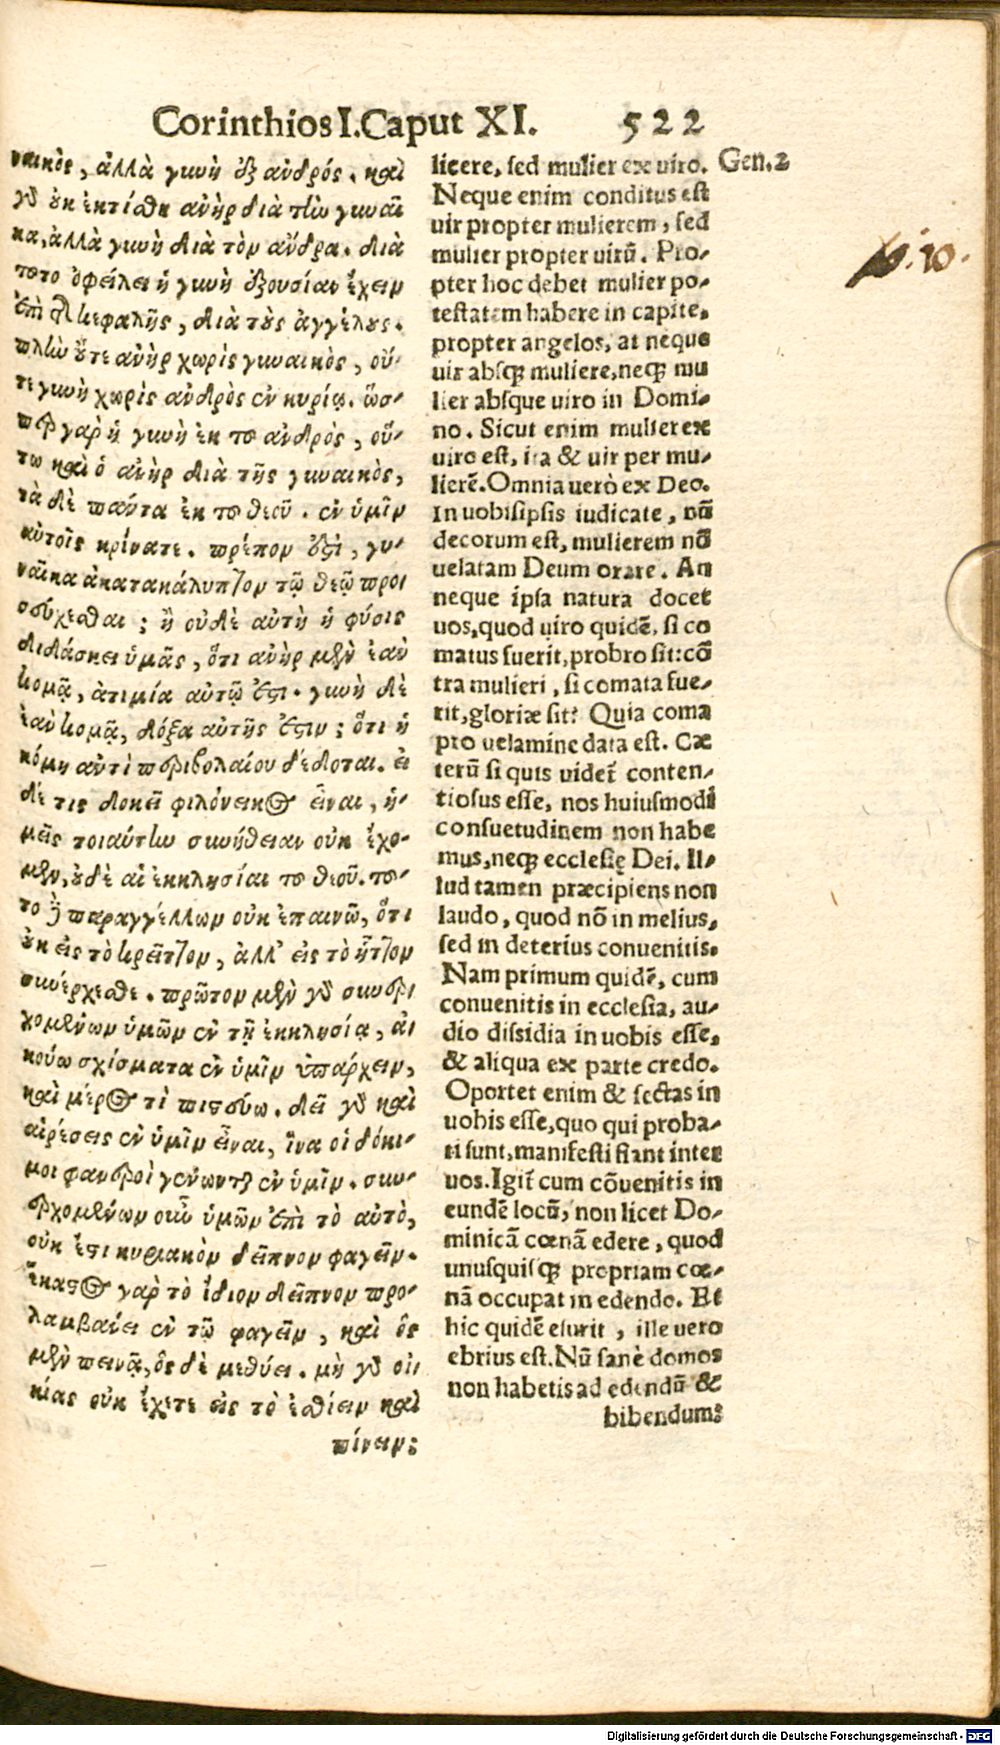 Corinthios I. Caput XI. 522
ναικὸς, ἀλλὰ γυνὴ ἐξ ἀνδρός. καὶ
γδ̀ ȣ̓κ ἐκτίσθη ἀνὴρ διὰ τὴν γυναῖ
κα, ἀλλὰ γυνὴ διὰ τὸν ἄνδρα. διὰ
τȣ̃το ὀφείλει ἡ γυνὴ ἐξουσίαν ἔχειν
ἐπὶ τῆ κεφαλῆς, διὰ τȣ̀ς ἀγγέλȣς.
πλὴν ȣ̓́τε ἀνὴρ χωρὶς γυναικὸς, οὔ-
τε γυνὴ χωρὶς ἀνδρὸς ἐν κυρίῳ. ὥσ-
περ γὰρ ἡ γυνὴ ἐκ τȣ͂ ἀνδρὸς, οὕ-
τω καὶ ὁ ἀνὴρ διὰ τῆς γυναικὸς,
τὰ δὲ πάντα ἐκ τȣ͂ θεοῦ. ἐν ὑμῖν
αὐτοῖς κρίνατε. πρέπον ἐϛὶ, γυ-
ναῖκα ἀκατακάλυπτον τῷ θεῷ προσ
σεύχεσθαι; ἢ οὐδὲ αὐτὴ ἡ φύσις
διδάσκει ὑμᾶς, ὅτι ἀνὴρ μὲν ἐὰν
κομᾷ, ἀτιμία αὐτῷ ἐϛι. γυνὴ δὲ
ἐὰν κομᾷ, δόξα αὐτῆς ἐϛιν; ὅτι ἡ
κόμη αὐτὶ περιβολαίου δέδοται. εἰ
δέ τις δοκεῖ φιλόνεικος εἶναι, ἡ-
μεῖς τοιαύτην συνήθειαν οὐκ ἔχο-
μεν, ȣ̓δὲ αἱ ἐκκλησίαι τȣ͂ θεοῦ. τȣ͂-
το δὲ παραγγέλλων οὐκ ἐπαινῶ, ὅτι
ȣ̓κ εἰς τὸ κρεῖττον, ἀλλ' εἰς τὸ ἧττον
συνέρχεσθε. πρῶτον μὲν γδ̀ συνερ
χομένων ὑμῶν ἐν τῇ ἐκκλησίᾳ, ἀ
κούω σχίσματα ἐν ὑμῖν ὑπάρχειν,
καὶ μέρος τὶ πιϛεύω. δεῖ γδ̀ καὶ
αἱρέσεις ἐν ὑμῖν εἶναι, ἵνα οἱ δόκι-
μοι φανεροὶ γένωνται ἐν ὑμῖν. συν-
ερχομένων οὖν ὑμῶν ἐπὶ τὸ αὐτὸ,
οὐκ ἔϛι κυριακὸν δεῖπνον φαγεῖν.
ἕκαϛος γὰρ τὸ ἴδιον δεῖπνον προ-
λαμβάνει ἐν τῷ φαγεῖν, καὶ ὃς
μὲν πεινᾷ, ὃς δὲ μεθύει. μὴ γδ̀ οἰ
κίας οὐκ ἔχετε εἰς τὸ ἐσθίειν καὶ
πίνειν;
licere, sed mulier ex uiro. Gen.2
Neque enim conditus est
uir propter mulierem, sed
mulier propter uirũ. Pro-
pter hoc debet mulier po-
testatem habere in capite,
propter angelos, at neque
uir absq; muliere, neq; mu
lier absque uiro in Domi-
no. Sicut enim mulier ex
uiro est, ita & uir per mu-
lierẽ. Omnia uerò ex Deo.
In uobisipsis iudicate, nũ
decorum est, mulierem nõ
uelatam Deum orare. An
neque ipsa natura docet
uos, quod uiro quidẽ, si co
matus fuerit, probro sit: cõ
tra mulieri, si comata fue-
rit, gloriæ sit? Quia coma
pro uelamine data est. Cæ
terũ si quis uidet̃ conten-
tiosus esse, nos huiusmodi
consuetudinem non habe
mus, neq; ecclesię Dei. Il-
lud tamen præcipiens non
laudo, quod nõ in melius,
sed in deterius conuenitis.
Nam primum quidẽ, cum
conuenitis in ecclesia, au-
dio dissidia in uobis esse,
& aliqua ex parte credo.
Oportet enim & sectas in
uobis esse, quo qui proba-
ti sunt, manifesti fiant inter
uos. Igit̃ cum cõuenitis in
eundẽ locũ, non licet Do-
minicã cœnã edere, quod
unusquisq; propriam cœ-
nã occupat in edendo. Et
hic quidẽ esurit, ille uero
ebrius est. Nũ sanè domos
non habetis ad edendũ &
bibendum?
Digitalisierung gefördert durch die Deutsche Forschungsgemeinschaft - DFG